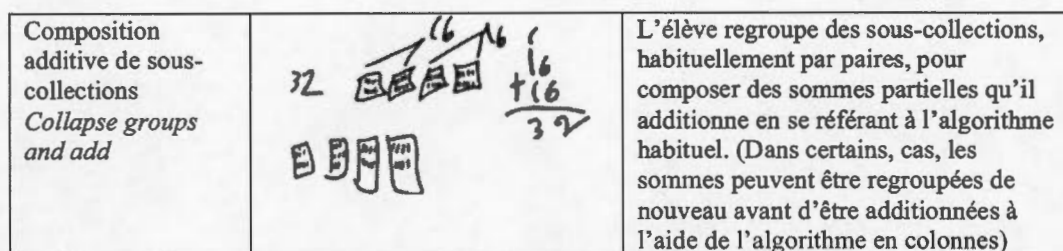 Composition
additive de sous-
collections
Collapse groups
and add
16 16
32
1
16
+16
32
L'élève regroupe des sous-collections,
habituellement par paires, pour
composer des sommes partielles qu'il
additionne en se référant à l'algorithme
habituel. (Dans certains, cas, les
sommes peuvent être regroupées de
nouveau avant d'être additionnées à
l'aide de l'algorithme en colonnes)